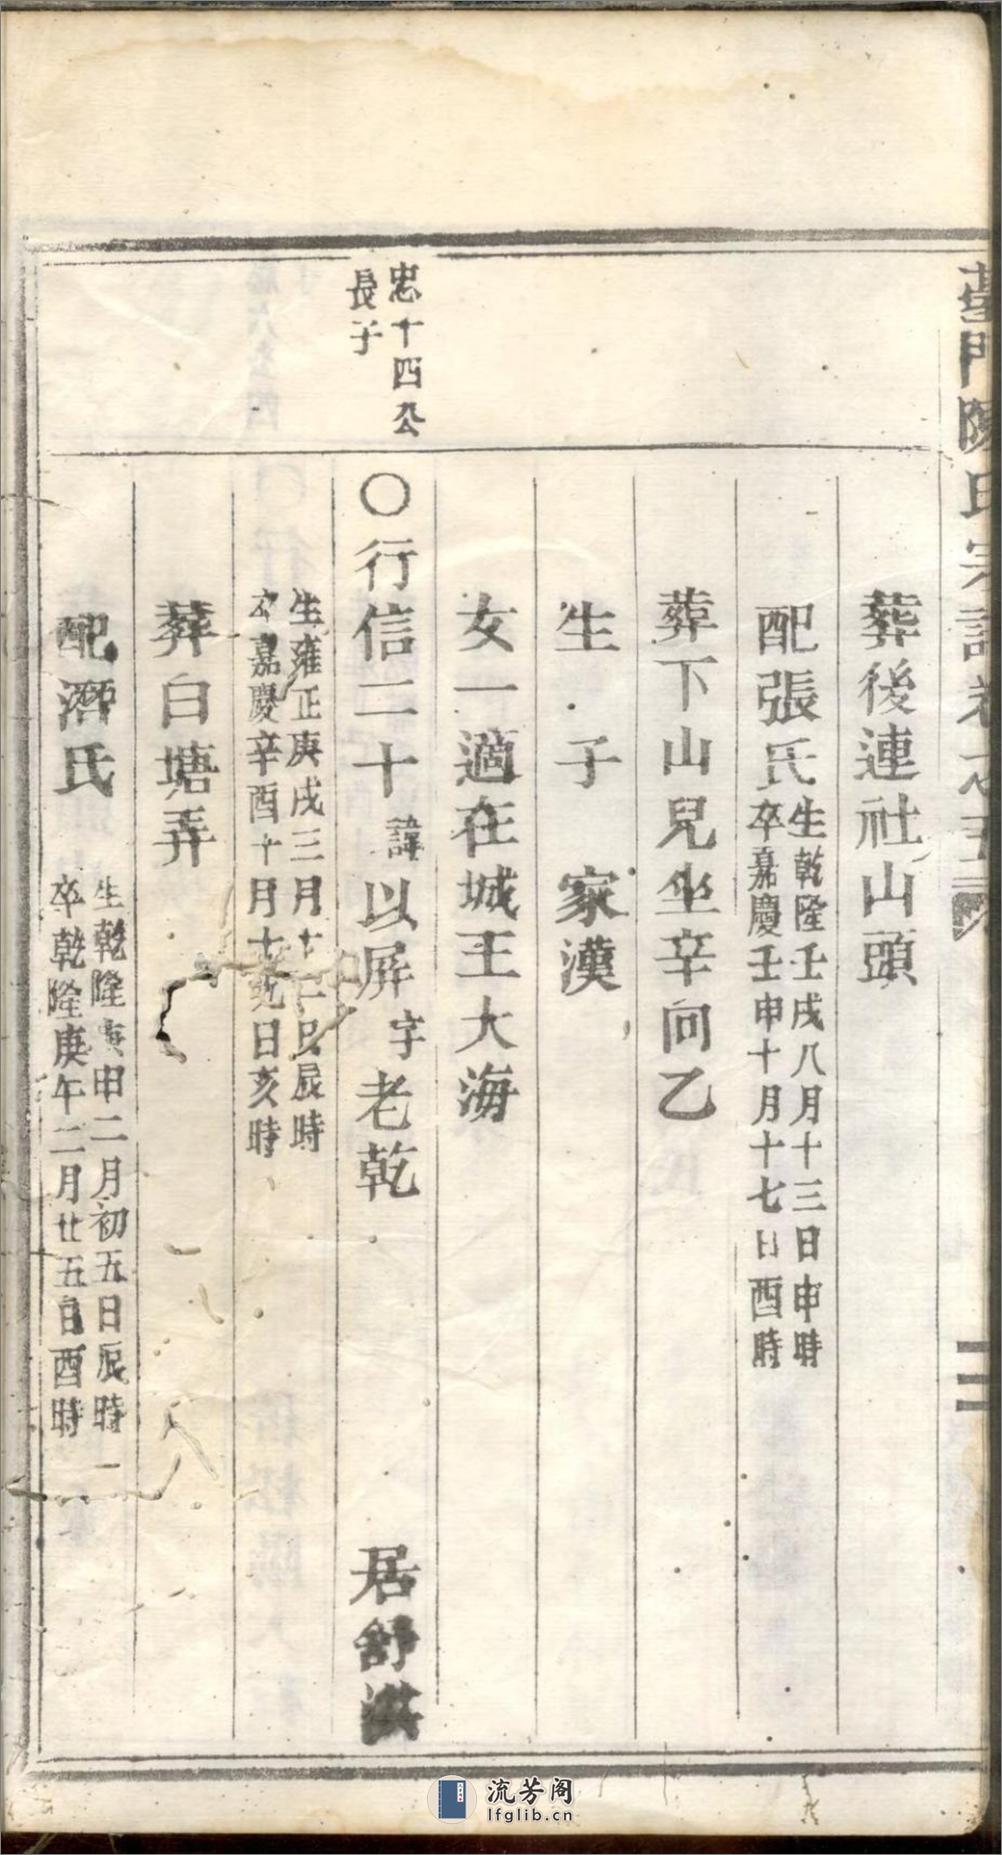 門陳氏宗譜卷之五
葬後連社山頭
配張氏
生乾隆壬戌八月十三日申時
卒嘉慶壬申十月十七日酉時
葬下山兒坐辛向乙
生子 家漢
女一適在城王大海
忠十四公
長子
〇行信二十諱以屏字老乾 居舒洪
生雍正庚戌三月十二日辰時
卒嘉慶辛酉十月十九日亥時
葬白塘弄
配潘氏
生乾隆庚申二月初五日辰時
卒乾隆庚午二月廿五日酉時
流芳阁
lfglib.cn